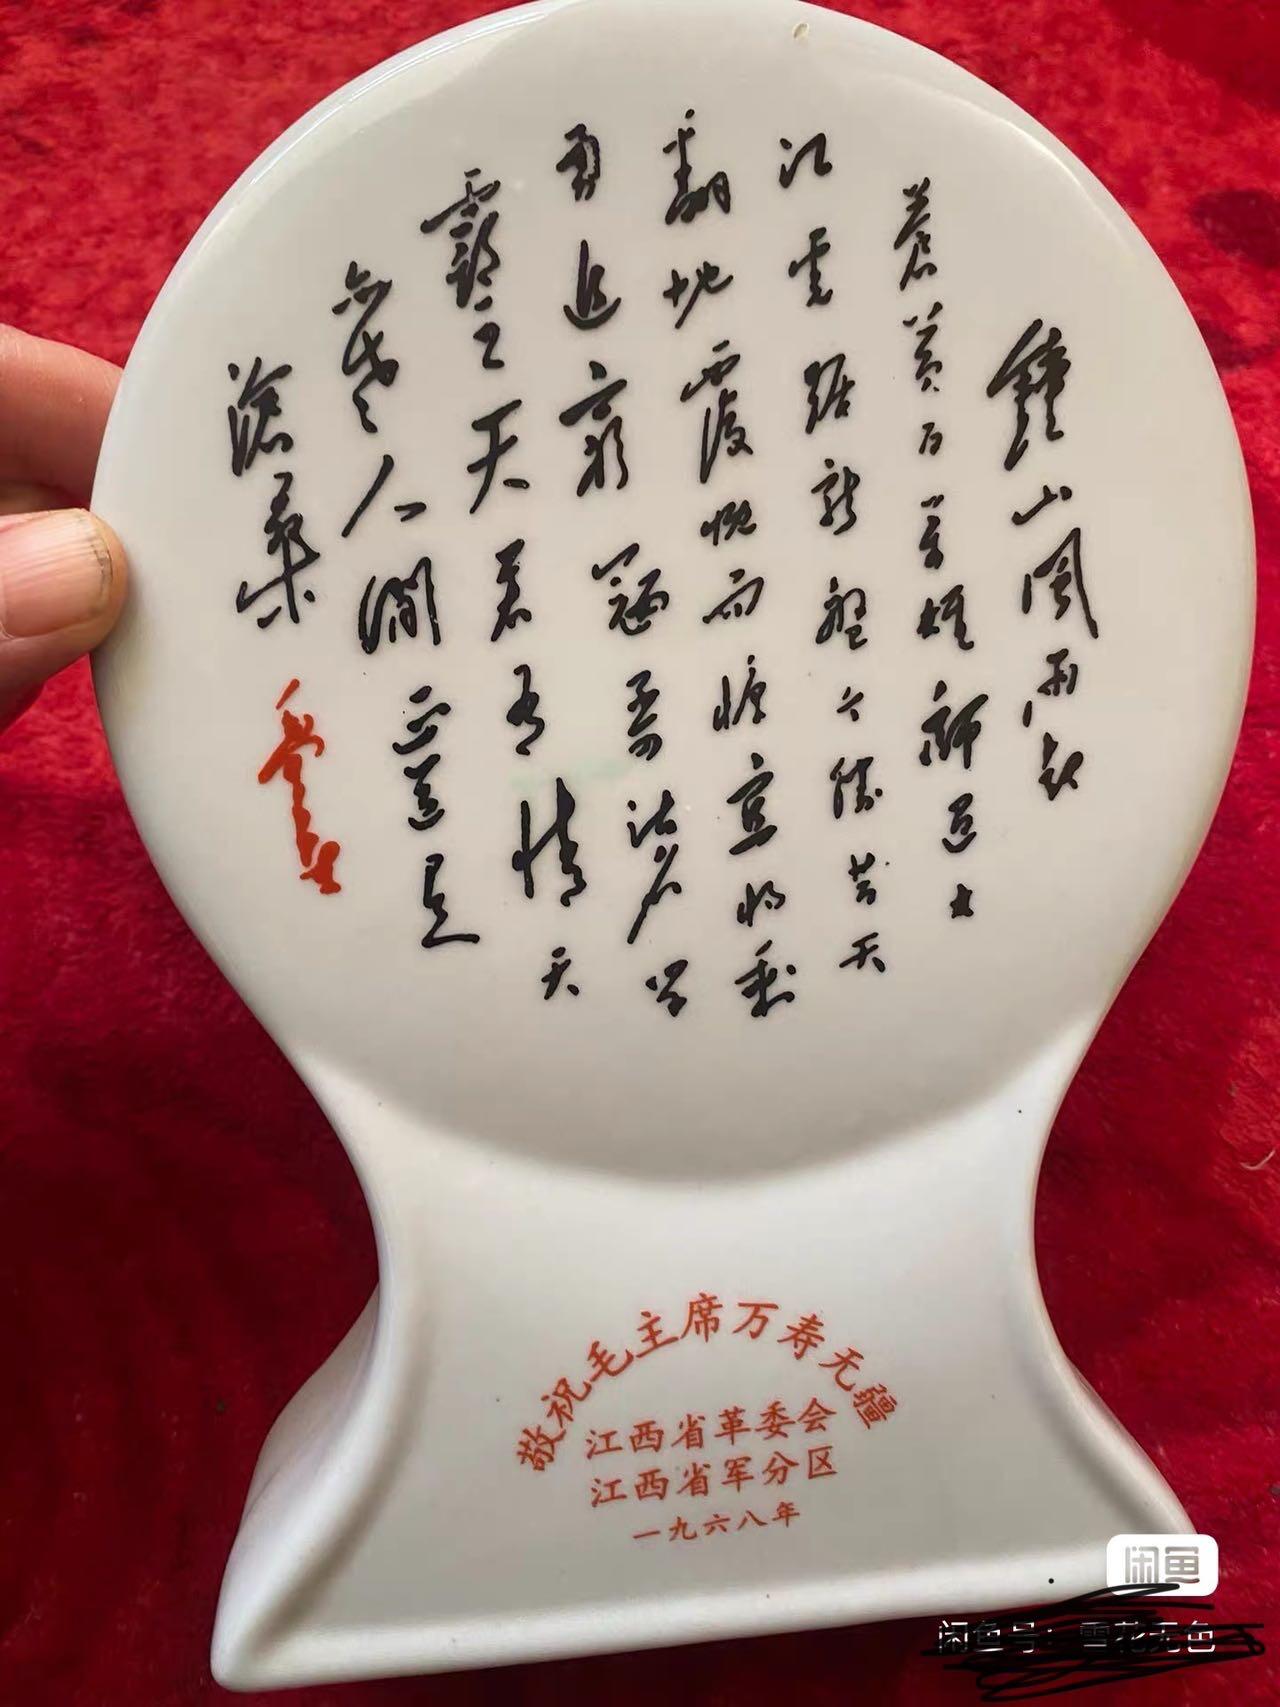 鐘山風雨起
蒼黄百萬雄師過大
江虎踞龍盤今勝昔天
翻地覆慨而慷宜將剩
勇追窮寇不可沽名學
霸王天若有情天
亦老人間正道是
滄桑
毛澤東
敬祝毛主席万寿无疆
江西省革委会
江西省军分区
一九六八年
闲鱼
闲鱼号：雪花无色